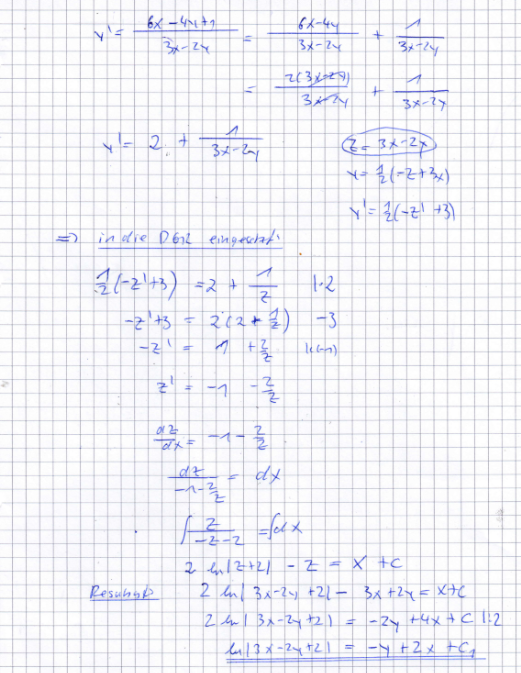 y' = (6x-4y+1)/(3x-2y) = (6x-4y)/(3x-2y) + 1/(3x-2y)
= 2(3x-2y)/(3x-2y) + 1/(3x-2y)
y' = 2 + 1/(3x-2y)
z = 3x-2y
y = 1/2(-z+3x)
y' = 1/2(-z'+3)
=> in die DGL eingesetzt:
1/2(-z'+3) = 2 + 1/z |·2
-z'+3 = 2(2+1/z) -3
-z' = 1 + 2/z |·(-1)
z' = -1 - 2/z
dz/dx = -1 - 2/z
dz/(-1-2/z) = dx
∫ z/(-z-2) = ∫dx
2 ln|z+2| - z = x + C
Resubst. 2 ln|3x-2y+2| - 3x+2y = x+C
2 ln|3x-2y+2| = -2y+4x+C |:2
ln|3x-2y+2| = -y+2x+C₁